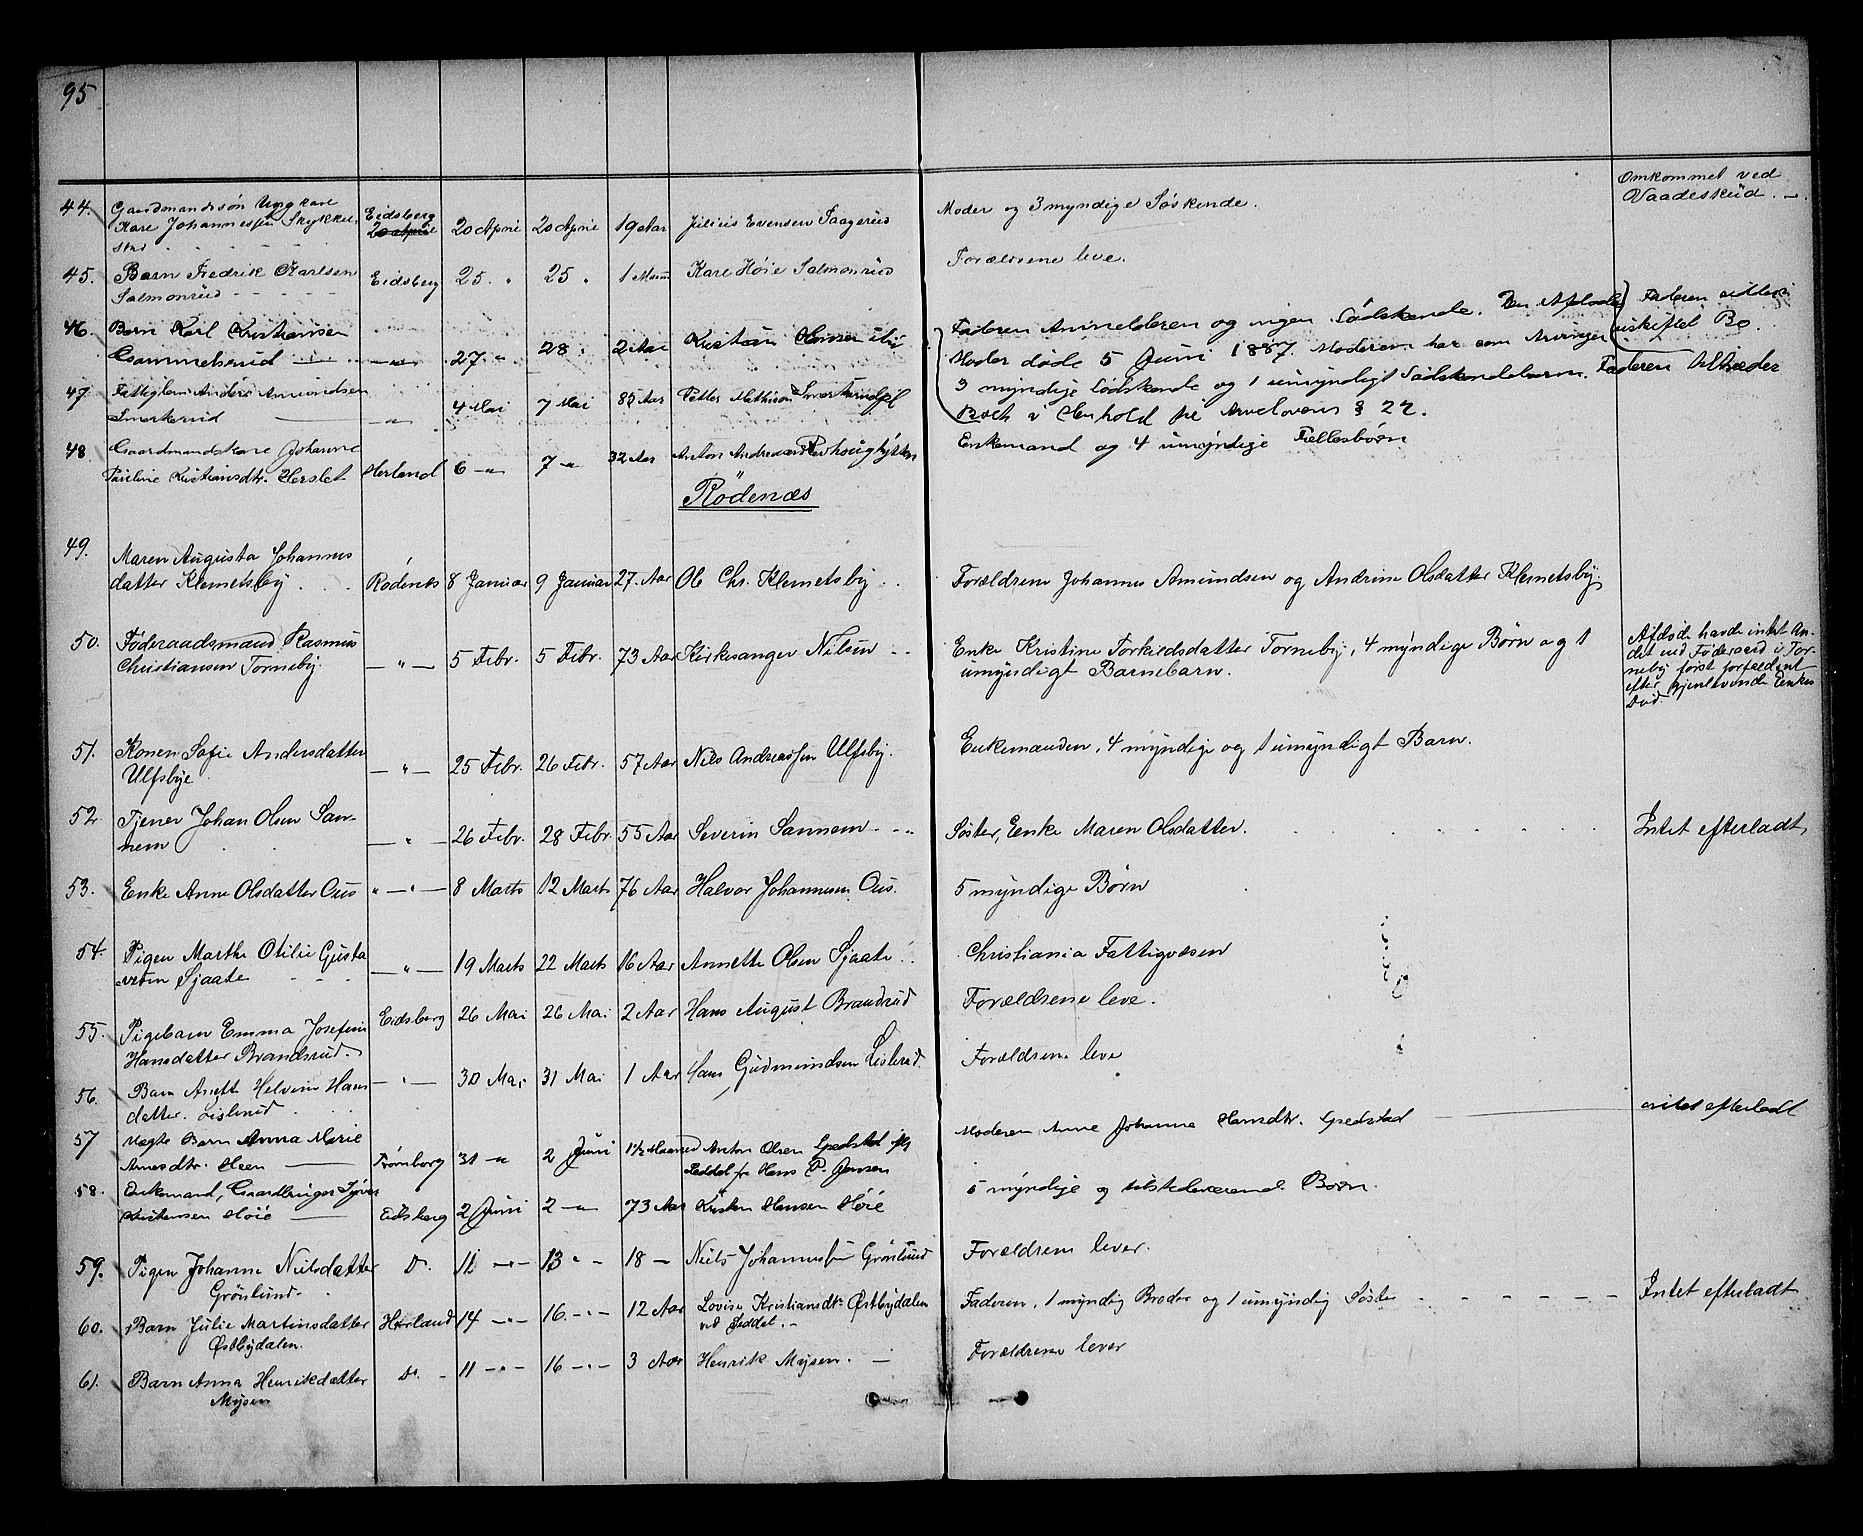 95
44. Gaardmandssøn Ungkare Eidsberg 20 April 20 April 19 Aar Julius Evensen Saagerud Moder og 3 myndige Søskende. Omkommet ved
Kare Johannessen Skykkel- 20 April Vaadeskud. —
stad
45. Barn Fredrik Karlsen Eidsberg 25. " 25 " 1 Maan Kare Høie Salmonrud Forældrene leve.
Salmonrud
46. Barn Karl Kristiansen —"— 27 " 28 " 2 Aar Kristian Faderen Anmelderen og ingen Södskende. Den Afdøde Faderen sidder
Gammelsrud Moder døde 5 Juni 1887. Moderen har som Arvinger uskiftet Bo.
47 Anders Amundsen —"— 4 Mai 7 Mai 85 Aar Petter Mathisen 3 myndige Södskende og 1 umyndigt Södskendebarn. Faderen tiltræder
Smerkerud Boet i Henhold til Arvelovens § 22.
48 Gaardmandskone Johanne Herland 6 —"— 7 —"— 32 Aar Anton Andreassen Enkemand og 4 umyndige Fællesbörn
Pauline Kristiansdtr. Herslet
Rödenæs
49. Maren Augusta Johannes Rödenes 8 Januar 9 Januar 27. Aar Ole Chr. Klemetsby Forældrene Johannes Amundsen og Andrine Olsdatter Klemetsby.
datter Klemetsby
50. Föderaadsmand Rasmus —"— 5 Febr. 5 Febr. 73 Aar Kirkesanger Nilsen Enke Kristine Torkildsdatter Torneby, 4 myndige Börn og 1 Afdøde havde intet An-
Christiansen Torneby umyndigt Barnebarn. det end Föderaad i Tor-
neby först forfaldent
efter gjenlevende Enkes
Död.
51. Konen Sofie Andersdatter —"— 25 Febr. 26 Febr. 57 Aar Nils Andreassen Ulfsby. Enkemanden, 4 myndige og 1 umyndigt Barn.
Ulfsbye
52. Tjener Johan Olsen San- —"— 26 Febr. 28 Febr. 55 Aar Severin Sannem Söster, Enke Maren Olsdatter. Intet efterladt
nem
53. Enke Anne Olsdatter Ous "—"— 8 Marts 12 Marts 76 Aar Halvor Johannesen Ous. 5 myndige Börn
54. Pigen Marthe Otilie Gusta —"— 19 Marts 22 Marts 16 Aar Annette Olsen Sjaate Christiania Fattigvæsen
Sjaate
55. Pigebarn Emma Josefine Eidsberg 26 Mai 26 Mai 2 Aar Hans August Brandsrud Forældrene leve.
Hansdatter Brandsrud.
56. Barn Anette Helvine Hans —"— 30 Mai 31 Mai 1 Aar Hans Gudmundsen Lislerud Forældrene leve
datter. Lislerud
57 Uægte Barn Anna Marie Trømborg 31 " 2 Juni 1½ Maaned Anton Olsen Moderen Anne Johanne Hansdtr. Gredstad intet efterladt
Heen Seddel fr Hans P. Jensen
58. Enkemand, Eidsberg 2 Juni 2 —"— 73 Aar Kristen Hansen Høie 5 myndige og tilstedeværende Börn.
Kristensen Høie
59. Pigen Johanne Nielsdatter Do. 11 —"— 13 " — 18 — Niels Johannesen Grönlund Forældrene lever.
Grönlund
60. Barn Julie Martinsdatter Herland 14 —"— 16. —"— 12 Aar Lovise Kristiansdtr Østbydalen Faderen, 1 myndig Broder og 1 umyndig Söster Intet efterladt
Østbydalen. ved Seddel. —
61. Barn Anna Henriksdatter Do. 11 —"— 16 —"— 3 Aar Henrik Mysen. — Forældrene lever
Mysen